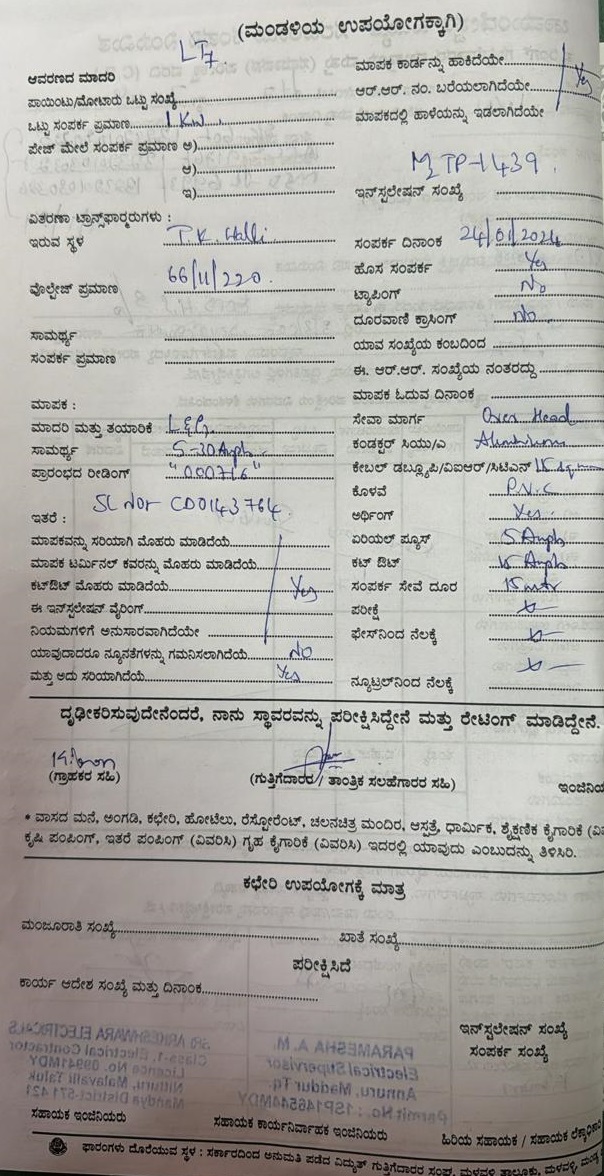 (ಮಂಡಳಿಯ ಉಪಯೋಗಕ್ಕಾಗಿ)
LT7
ಆವರಣದ ಮಾದರಿ
ಪಾಯಿಂಟು/ಮೋಟಾರು ಒಟ್ಟು ಸಂಖ್ಯೆ
ಒಟ್ಟು ಸಂಪರ್ಕ ಪ್ರಮಾಣ 1 KW
ಪೇಜ್ ಮೇಲೆ ಸಂಪರ್ಕ ಪ್ರಮಾಣ ಅ)
ಆ)
ಇ)
ವಿತರಣಾ ಟ್ರಾನ್ಸ್‌ಫಾರ್‍ಮರುಗಳು :
ಇರುವ ಸ್ಥಳ T.K. Halli
ವೋಲ್ಟೇಜ್ ಪ್ರಮಾಣ 66/11/220
ಸಾಮರ್ಥ್ಯ
ಸಂಪರ್ಕ ಪ್ರಮಾಣ
ಮಾಪಕ :
ಮಾದರಿ ಮತ್ತು ತಯಾರಿಕೆ L&G
ಸಾಮರ್ಥ್ಯ 5-30 Amph
ಪ್ರಾರಂಭದ ರೀಡಿಂಗ್ "000716"
SL No: CD0143764
ಇತರೆ :
ಮಾಪಕವನ್ನು ಸರಿಯಾಗಿ ಮೊಹರು ಮಾಡಿದೆಯೆ
ಮಾಪಕ ಟರ್ಮಿನಲ್ ಕವರನ್ನು ಮೊಹರು ಮಾಡಿದೆಯೆ
ಕಟ್‌ಔಟ್ ಮೊಹರು ಮಾಡಿದೆಯೆ Yes
ಈ ಇನ್‌ಸ್ಟಲೇಷನ್ ವೈರಿಂಗ್
ನಿಯಮಗಳಿಗೆ ಅನುಸಾರವಾಗಿದೆಯೇ
ಯಾವುದಾದರೂ ನ್ಯೂನತೆಗಳನ್ನು ಗಮನಿಸಲಾಗಿದೆಯೆ NO
ಮತ್ತು ಅದು ಸರಿಯಾಗಿದೆಯೆ Yes
ಮಾಪಕ ಕಾರ್ಡನ್ನು ಹಾಕಿದೆಯೇ
ಆರ್.ಆರ್. ನಂ. ಬರೆಯಲಾಗಿದೆಯೇ Yes
ಮಾಪಕದಲ್ಲಿ ಹಾಳೆಯನ್ನು ಇಡಲಾಗಿದೆಯೇ
MTP-1439
ಇನ್‌ಸ್ಟಲೇಷನ್ ಸಂಖ್ಯೆ
ಸಂಪರ್ಕ ದಿನಾಂಕ 24/01/2024
ಹೊಸ ಸಂಪರ್ಕ Yes
ಟ್ಯಾಪಿಂಗ್ No
ದೂರವಾಣಿ ಕ್ರಾಸಿಂಗ್ no
ಯಾವ ಸಂಖ್ಯೆಯ ಕಂಬದಿಂದ
ಈ. ಆರ್.ಆರ್. ಸಂಖ್ಯೆಯ ನಂತರದ್ದು
ಮಾಪಕ ಓದುವ ದಿನಾಂಕ
ಸೇವಾ ಮಾರ್ಗ Over Head
ಕಂಡಕ್ಟರ್ ಸಿಯು/ಎ Aluminium
ಕೇಬಲ್ ಡಬ್ಲ್ಯೂಪಿ/ವಿಐಆರ್/ಸಿಟಿಎಸ್
ಕೊಳವೆ P.V.C
ಅರ್ಥಿಂಗ್ Yes
ಏರಿಯಲ್ ಫ್ಯೂಸ್ 5 Amph
ಕಟ್ ಔಟ್ 15 Amph
ಸಂಪರ್ಕ ಸೇವೆ ದೂರ 15 mtr
ಪರೀಕ್ಷೆ
ಫೇಸ್‌ನಿಂದ ನೆಲಕ್ಕೆ
ನ್ಯೂಟ್ರಲ್‌ನಿಂದ ನೆಲಕ್ಕೆ
ದೃಢೀಕರಿಸುವುದೇನೆಂದರೆ, ನಾನು ಸ್ಥಾವರವನ್ನು ಪರೀಕ್ಷಿಸಿದ್ದೇನೆ ಮತ್ತು ರೇಟಿಂಗ್ ಮಾಡಿದ್ದೇನೆ.
(ಗ್ರಾಹಕರ ಸಹಿ) (ಗುತ್ತಿಗೆದಾರರ / ತಾಂತ್ರಿಕ ಸಲಹೆಗಾರರ ಸಹಿ) ಇಂಜಿನಿಯ
* ವಾಸದ ಮನೆ, ಅಂಗಡಿ, ಕಛೇರಿ, ಹೋಟೆಲು, ರೆಸ್ಟೋರೆಂಟ್, ಚಲನಚಿತ್ರ ಮಂದಿರ, ಆಸ್ಪತ್ರೆ, ಧಾರ್ಮಿಕ, ಶೈಕ್ಷಣಿಕ ಕೈಗಾರಿಕೆ (ವಿವ
ಕೃಷಿ ಪಂಪಿಂಗ್, ಇತರೆ ಪಂಪಿಂಗ್ (ವಿವರಿಸಿ) ಗೃಹ ಕೈಗಾರಿಕೆ (ವಿವರಿಸಿ) ಇದರಲ್ಲಿ ಯಾವುದು ಎಂಬುದನ್ನು ತಿಳಿಸಿರಿ.
ಕಛೇರಿ ಉಪಯೋಗಕ್ಕೆ ಮಾತ್ರ
ಮಂಜೂರಾತಿ ಸಂಖ್ಯೆ ಖಾತೆ ಸಂಖ್ಯೆ
ಪರೀಕ್ಷಿಸಿದೆ
ಕಾರ್ಯ ಆದೇಶ ಸಂಖ್ಯೆ ಮತ್ತು ದಿನಾಂಕ
ಇನ್‌ಸ್ಟಲೇಷನ್ ಸಂಖ್ಯೆ
ಸಂಪರ್ಕ ಸಂಖ್ಯೆ
PARAMESHA A.M.
Electrical Supervisor
Annuru, Maddur Tq.
Permit No.: 1SP14654MDY
ARKESHWARA ELECTRICALS
Class-1, Electrical Contractor
Licence No. 09941MDY
Nitturu, Malavalli Taluk
Mandya District-571421
ಸಹಾಯಕ ಇಂಜಿನಿಯರು ಸಹಾಯಕ ಕಾರ್ಯನಿರ್ವಾಹಕ ಇಂಜಿನಿಯರು ಹಿರಿಯ ಸಹಾಯಕ / ಸಹಾಯಕ ಲೆಕ್ಕಾಧಿಕಾರಿ
ಫಾರಂಗಳು ದೊರೆಯುವ ಸ್ಥಳ : ಸರ್ಕಾರದಿಂದ ಅನುಮತಿ ಪಡೆದ ವಿದ್ಯುತ್ ಗುತ್ತಿಗೆದಾರರ ಸಂಘ, ಮಳವಳ್ಳಿ ತಾಲ್ಲೂಕು, ಮಳವಳ್ಳಿ, ಮಂಡ್ಯ